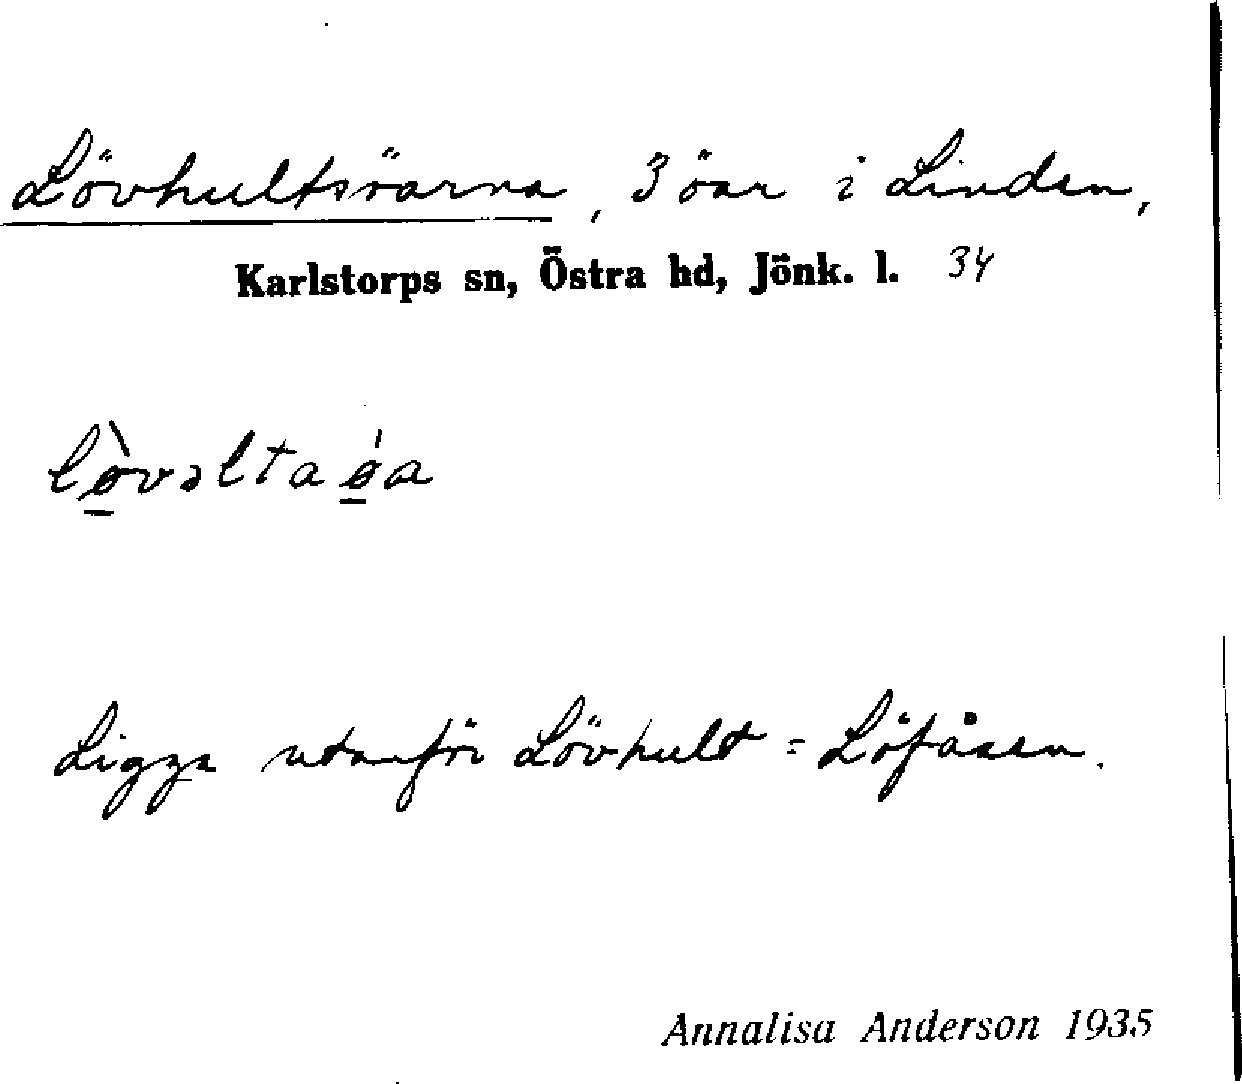 Lövhultsöarna, 3 öar i Linden,
Karlstorps sn, Östra hd, Jönk. l. 34
lø̠̀vəltaǿ̠a
Ligga utanför Lövhult = Löfåsen.
Annalisa Anderson 1935